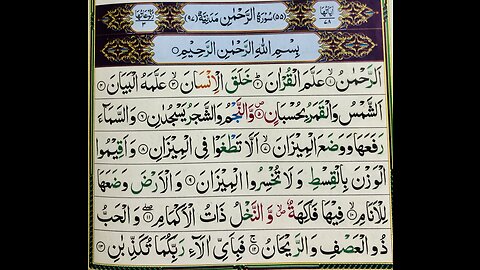 اٰيَاتُهَا ٧٨ (٥٥) سُوْرَةُ الرَّحْمٰنِ مَدَنِيَّةٌ (٩٧) رُكُوْعَاتُهَا ٣
بِسْمِ اللّٰهِ الرَّحْمٰنِ الرَّحِيْمِ
اَلرَّحْمٰنُ ۙ﴿١﴾ عَلَّمَ الْقُرْاٰنَ ؕ﴿٢﴾ خَلَقَ الْاِنْسَانَ ۙ﴿٣﴾ عَلَّمَهُ الْبَيَانَ ﴿٤﴾
اَلشَّمْسُ وَالْقَمَرُ بِحُسْبَانٍ ۪﴿٥﴾ وَّالنَّجْمُ وَالشَّجَرُ يَسْجُدٰنِ ﴿٦﴾ وَالسَّمَآءَ
رَفَعَهَا وَوَضَعَ الْمِيْزَانَ ۙ﴿٧﴾ اَلَّا تَطْغَوْا فِي الْمِيْزَانِ ﴿٨﴾ وَاَقِيْمُوا
الْوَزْنَ بِالْقِسْطِ وَلَا تُخْسِرُوا الْمِيْزَانَ ﴿٩﴾ وَالْاَرْضَ وَضَعَهَا
لِلْاَنَامِ ۙ﴿١٠﴾ فِيْهَا فَاكِهَةٌ ۪ۙ وَّالنَّخْلُ ذَاتُ الْاَكْمَامِ ۖ﴿١١﴾ وَالْحَبُّ
ذُو الْعَصْفِ وَالرَّيْحَانُ ۚ﴿١٢﴾ فَبِاَيِّ اٰلَآءِ رَبِّكُمَا تُكَذِّبٰنِ ﴿١٣﴾